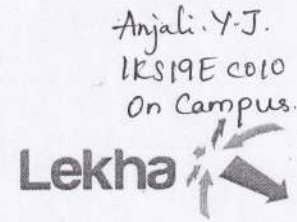 Anjali.Y.J.
1KS19EC010
On Campus.
Lekha